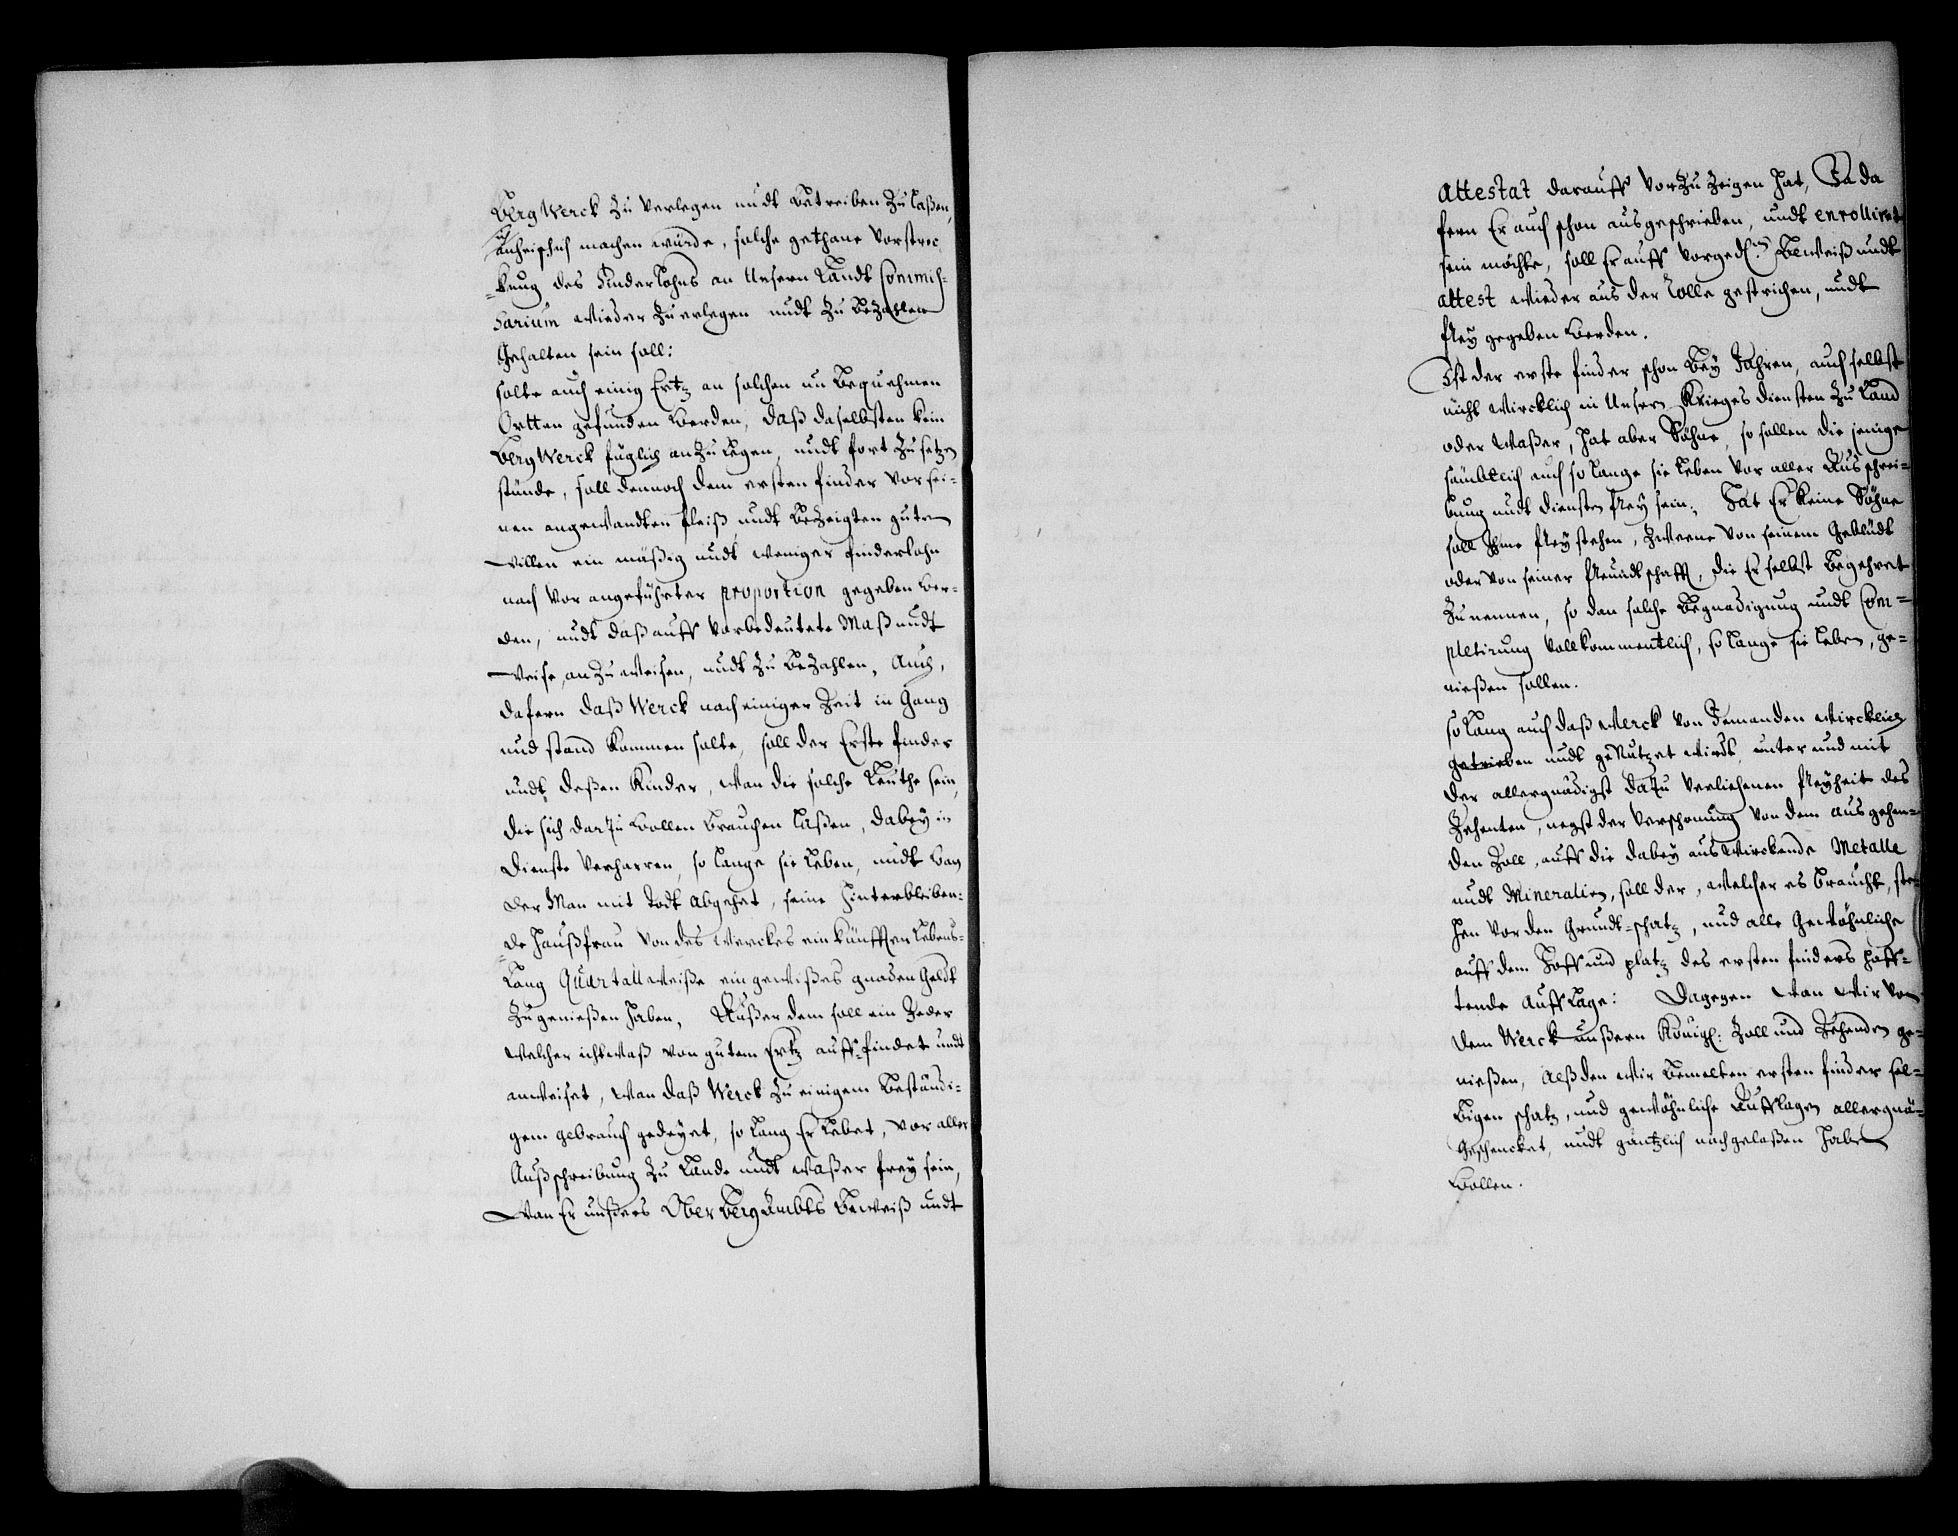 Berg Werck Zu Verlegen undt Betreiben Zu Laßen,
sich anheischich machen würde, solche gethane Vorstrec
kung des Finderlohns an Unsern Landt Commis-
sarium wieder Zu erlegen undt Zu Bezahlen
Gehalten sein soll:
solte auch einig Ertz an solchen un Bequehmen
Ortten gefunden werden, daß daselbsten kein
Berg Werck füglich an Zu Legen, undt fort Zu setzen
stünde, soll dennoch dem ersten finder Vor sei-
nen angewandten fleiß undt Bezeigten guten
Willen ein mäßig undt weniger finderlohn
nach Vor angeführter proportion gegeben wer-
den, undt daß auff Vorbedeutete Maß undt
Weise, an Zu weisen, undt Zu Bezahlen, Auch,
dafern daß Werck nach einiger Zeit in Gang
und stand kommen solte, soll der Erste finder
undt deßen Kinder, wan die solche Leuthe sein,
die sich dar Zu wollen brauchen laßen, dabey in
Dienste Verharren, so lange sie Leben, undt wan
der Man mit Todt abgehet, seine Hinterbleiben-
de Haußfrau Von des Werckes einkünfften Lebens-
Lang Quartall weiße ein gewißes gnaden Geldt
Zu genießen Haben, Außer dem soll ein Jeder
welcher ichtwaß von gutem Ertz auff-findet undt
anweiset, wan daß Werck Zu einigem Beständi-
gem gebrauch gedeyet, so lang Er Lebet, vor aller
Außschreibung Zu Lande undt Waßer frey sein,
Wan Er unsers Ober Berg Ambts Beweiß undt
Attestat darauff Vor Zu Zeigen hat, Ja da
fern Er auch schon ausgeschrieben, undt enrolliret
sein möchte, soll Er auff Vorged. Beweiß undt
attest wieder aus der Rolle gestrichen, undt
frey gegeben werden.
Ist der erste finder schon Bey Jahren, auch selbst
nicht wircklich in Unsern Krieges diensten Zu Land
oder Waßer, hat aber Söhne, so sollen die jenige
sämbtlich auch so lange sie Leben Vor aller Ausschrei-
bung undt diensten frey sein, Hat Er keine Söhne
soll Ihme frey stehen, Zweene Von seinem Geblüdt
oder Von seiner freundtschafft, die Er selbst Begehret
Zu nennen, so dan solche Begnadigung undt Com-
pletirung Vollkommentlich, so Lange sie Leben, ge-
nießen sollen.
so Lang auch daß Werck Von Jemanden wircklich
getrieben undt genutzet wirdt, unter und mit
der allergnädigst dazu Verliehenen freyheit des
Zehenten, negst der Verschonung Von dem ausgehen-
den Zoll, auff die dabey auswirckende Metalle
undt Mineralien, soll der, welcher es braucht, ste-
hen vor den Grundt-schatz, und alle Gewöhnliche
auff dem Hoff und platz des ersten finders hafft-
tende Aufflage: Dagegen wan wir Von
dem Werck unßern Königl: Zoll und Zehenden ge-
nießen, Alß den wir Bemelten ersten finder sel-
bigen schatz, und gewöhnliche Aufflagen allergnä-
Geschencket, undt gäntzlich nachgelaßen haben
Wollen.